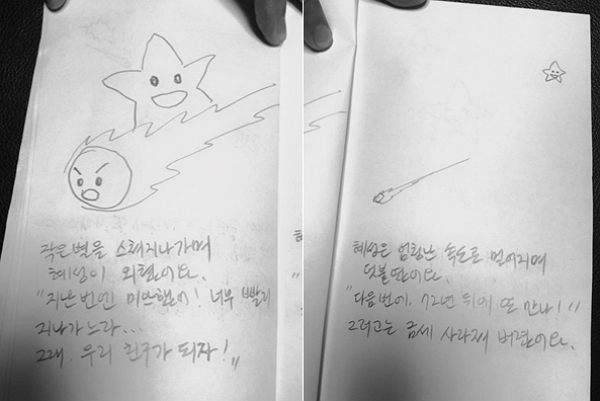 작은별을 스쳐지나가며
혜성이 외쳤어요.
"지난번엔 미안했어! 너무 빨리
지나가느라...
그래, 우리 친구가 되자!"
혜성은 엄청난 속도로 멀어지며
덧붙였어요.
"다음번에, 72년 뒤에 또 만나!"
그러고는 금세 사라져 버렸어요.